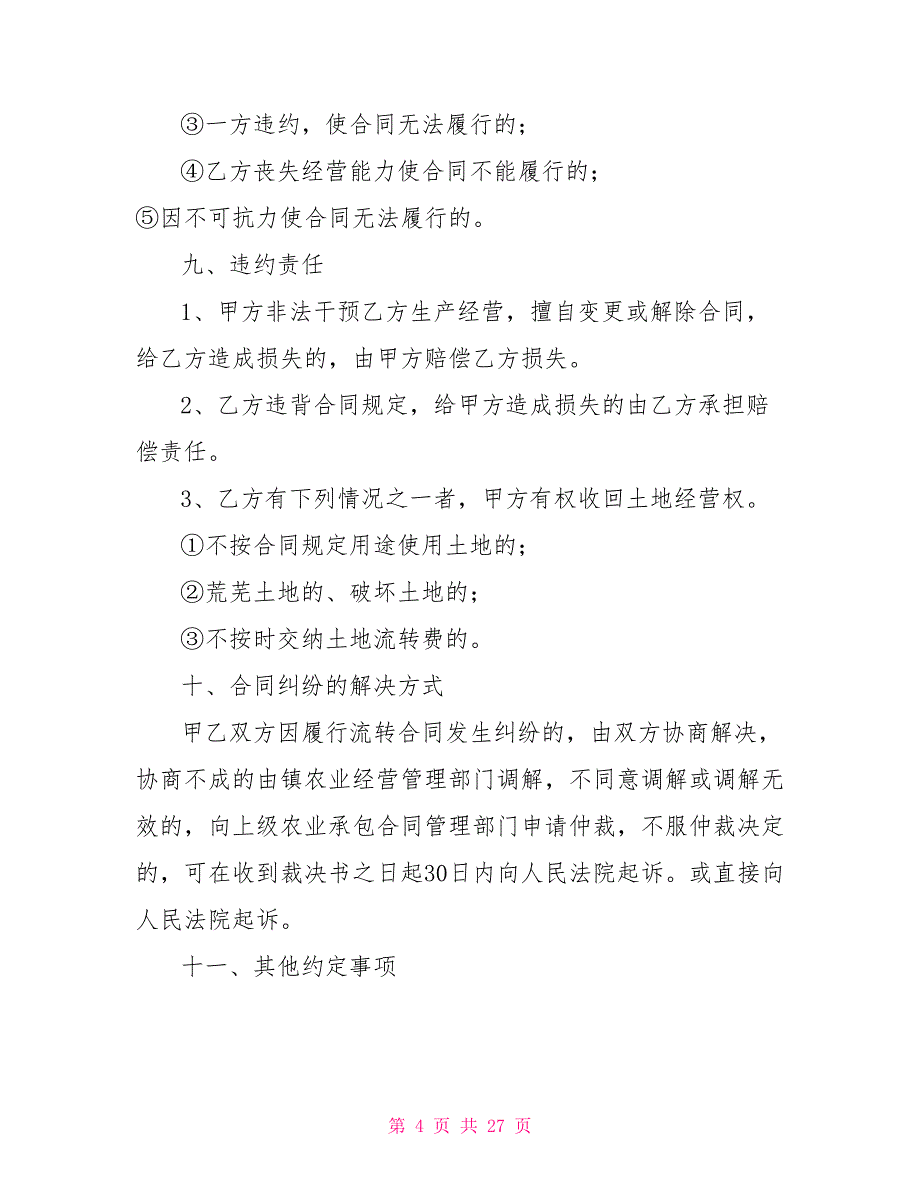 ③一方违约，使合同无法履行的；
④乙方丧失经营能力使合同不能履行的；
⑤因不可抗力使合同无法履行的。
九、违约责任
1、甲方非法干预乙方生产经营，擅自变更或解除合同，
给乙方造成损失的，由甲方赔偿乙方损失。
2、乙方违背合同规定，给甲方造成损失的由乙方承担赔
偿责任。
3、乙方有下列情况之一者，甲方有权收回土地经营权。
①不按合同规定用途使用土地的；
②荒芜土地的、破坏土地的；
③不按时交纳土地流转费的。
十、合同纠纷的解决方式
甲乙双方因履行流转合同发生纠纷的，由双方协商解决，
协商不成的由镇农业经营管理部门调解，不同意调解或调解无
效的，向上级农业承包合同管理部门申请仲裁，不服仲裁决定
的，可在收到裁决书之日起30日内向人民法院起诉。或直接向
人民法院起诉。
十一、其他约定事项
第 4 页 共 27 页